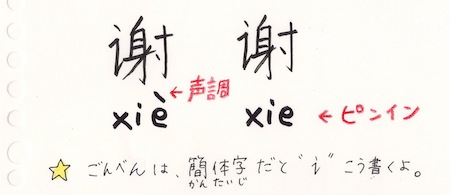 谢 谢
xiè ←声調 xie ←ピンイン
ごんべんは、簡体字だと"讠"こう書くよ。
かんたいじ